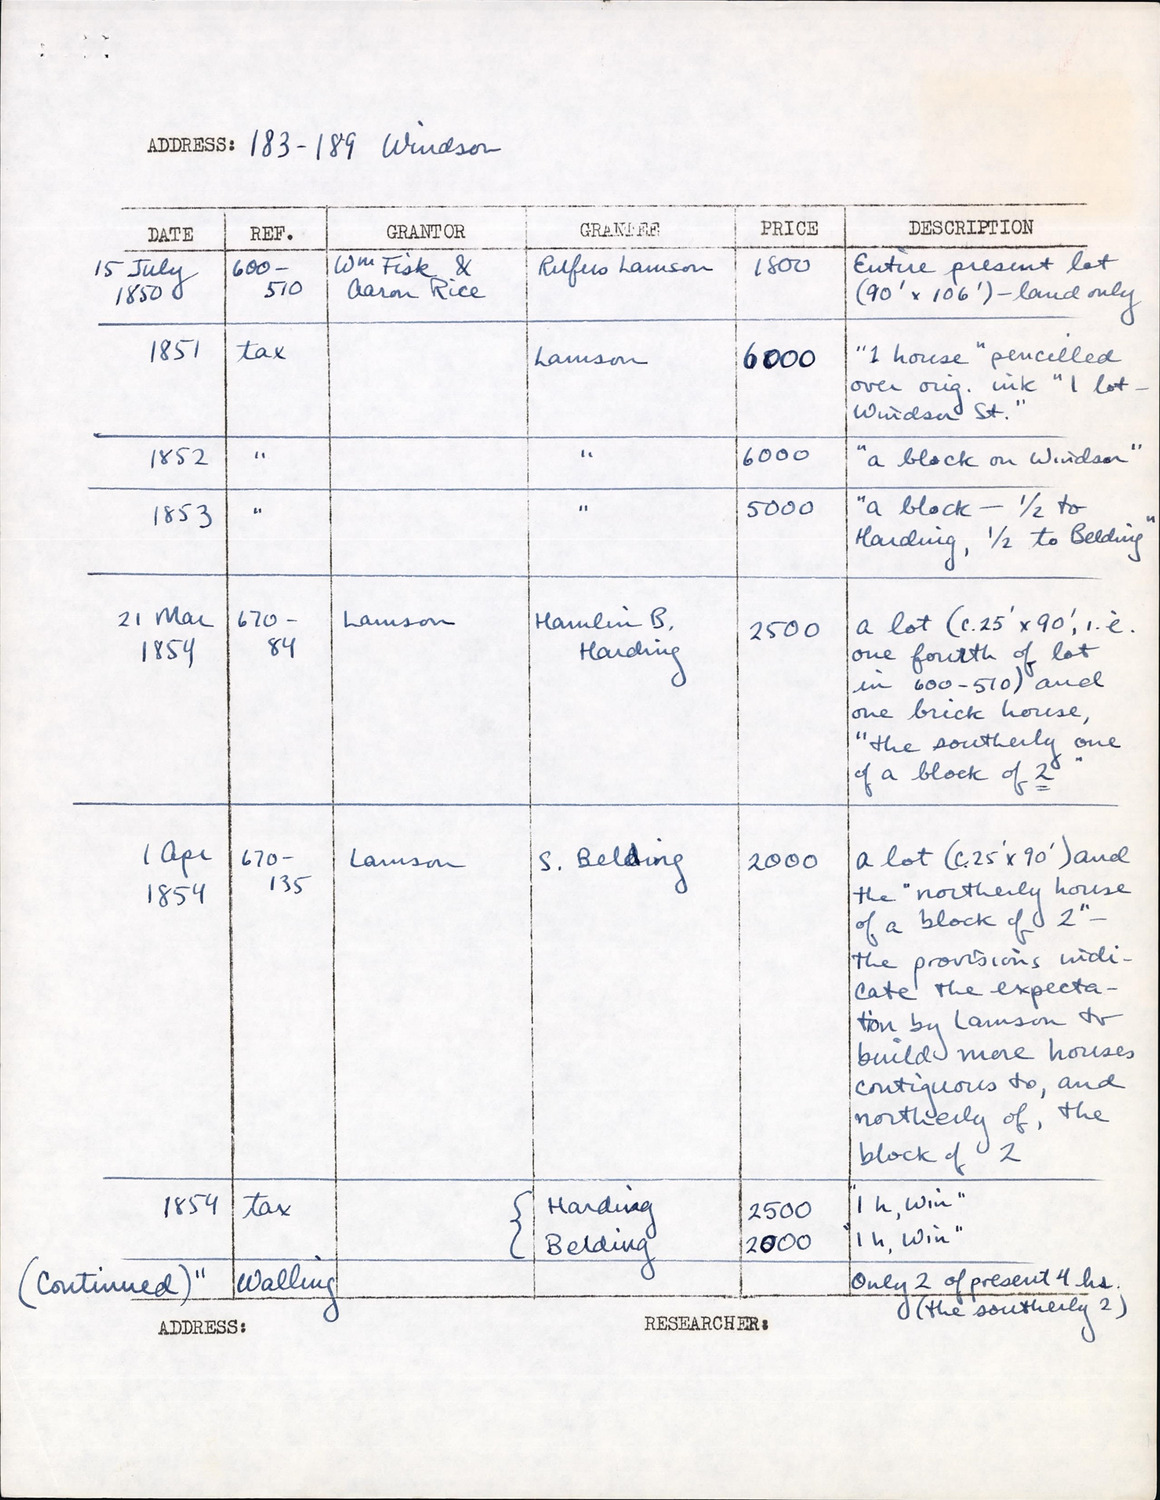 ADDRESS: 183-189 Windsor
DATE REF. GRANTOR GRANTEE PRICE DESCRIPTION
15 July 600- Wm Fisk & Rufus Lamson 1800 Entire present lot
1850 510 Aaron Rice (90' x 106') - land only
1851 tax Lamson 6000 "1 house" pencilled
over orig. ink "1 lot -
Windsor St."
1852 " " 6000 "a block on Windsor"
1853 " " 5000 "a block - 1/2 to
Harding, 1/2 to Belding"
21 Mar 670- Lamson Hamlin B. 2500 a lot (c.25' x 90', i.e.
1854 84 Harding one fourth of lot
in 600-510) and
one brick house,
"the southerly one
of a block of 2"
1 Apr 670- Lamson S. Belding 2000 a lot (c.25' x 90') and
1854 135 the "northerly house
of a block of 2" -
the provisions indi-
cate the expecta-
tion by Lamson to
build more houses
contiguous to, and
northerly of, the
block of 2
1854 tax { Harding 2500 "1 h, Win"
Belding 2000 "1 h, Win"
(Continued) " Walling Only 2 of present 4 hs.
(the southerly 2)
ADDRESS: RESEARCHER: